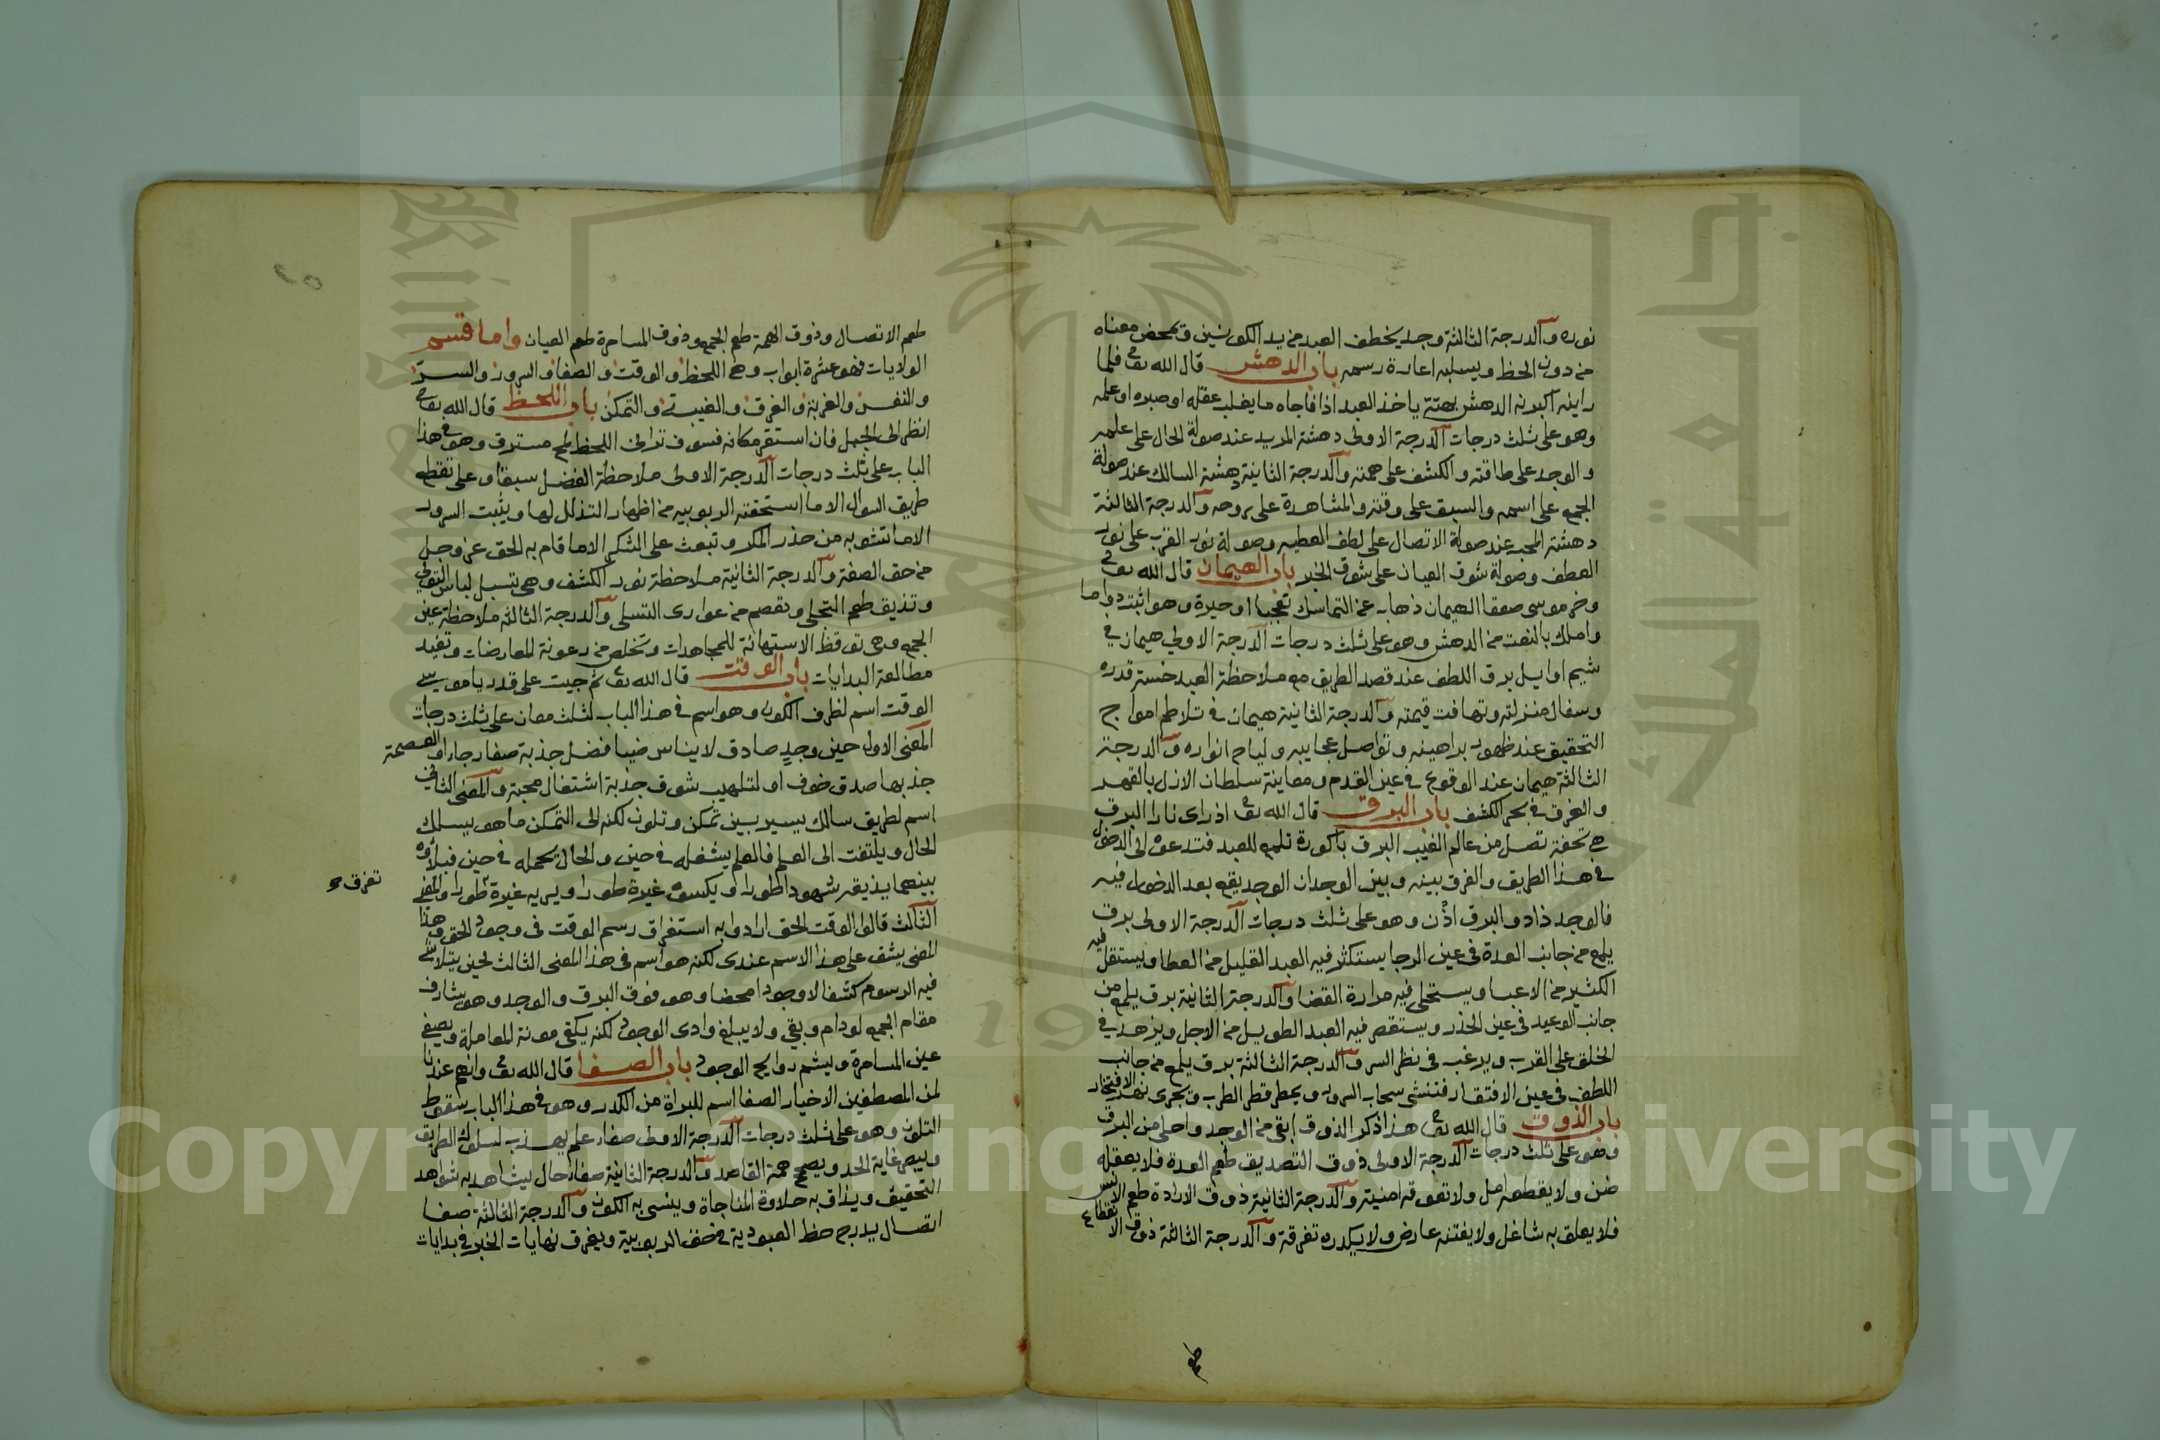 نوره والدرجة الثالثة وجد يخطف العبد من يد الكونين ويمحص معناه
من دون الحظ ويسلبه اعارة رسمه باب الدهش قال الله تعالى فلما
راينه اكبرنه الدهش بهتة ياخذ العبد اذا فاجاه ما يغلب عقله او صبره او علمه
وهو على ثلث درجات الدرجة الاولى دهشة المريد عند صولة الحال على علمه
والوجد على طاقته والكشف على همته والدرجة الثانية دهشة السالك عند صولة
الجمع على اسمه والسبق على وقته والمشاهدة على روحه والدرجة الثالثة
دهشة المحب عند صولة الاتصال على لطف العطيه وصولة نور القرب على نور
العطف وصولة شوق العيان على شوق الخبر باب الهيمان قال الله تعالى
وخر موسى صعقا الهيمان ذهاب عن التماسك تعجبا او حيرة وهو اثبت دواما
واملك بالنعت من الدهش وهو على ثلث درجات الدرجة الاولى هيمان في
شيم اوايل برق اللطف عند قصد الطريق مع ملاحظة العبد خسة قدره
وسفال منزلته وتهافت قيمته والدرجة الثانية هيمان في تلاطم امواج
التحقيق عند ظهور براهينه وتواصل عجايبه ولياح انواره والدرجة
الثالثة هيمان عند الوقوع في عين القدم ومعاينة سلطان الازل بالقهر
والغرق في بحر الكشف باب البرق قال الله تع اذ راى نارا البرق
هي تحفة تصل من عالم الغيب البرق باكورة تلمع للعبد فتدعوه الى الدخول
في هذا الطريق والفرق بينه وبين الوجد ان الوجد يقع بعد الدخول فيه
فالوجد زاد والبرق اذن وهو على ثلث درجات الدرجة الاولى برق
يلمع من جانب العدة في عين الرجا يستكثر فيه العبد القليل من العطا ويستقل فيه
الكثير من الاعبا ويستحلى فيه مرارة القضا والدرجة الثانية برق يلمع من
جانب الوعيد في عين الحذر ويستقصر فيه العبد الطويل من الاجل ويزهد في
الخلق على القرب ويرغب في نظر السر والدرجة الثالثة برق يلمع من جانب
اللطف في عين الافتقار فتنشى سحاب السرور ويمطر قطر الطرب ويجرى نهر الافتخار
باب الذوق قال الله تع هذا ذكر الذوق ابقى من الوجد واحلى من البرق
وهو على ثلث درجات الدرجة الاولى ذوق التصديق طعم العدة فلا يعقله
ظن ولا يقطعه امل ولا تعوقه امنية والدرجة الثانية ذوق الارادة طعم الانس
فلا يعلق به شاغل ولا يفتنه عارض ولا يكدره تفرقة والدرجة الثالثة ذوق الانقطاع
طعم
طعم الاتصال وذوق الهمة طعم الجمع وذوق المسامرة طعم العيان واما قسم
الولايات فهو عشرة ابواب وهي اللحظ والوقت والصفا والسرور والسر
والنفس والغربة والغرق والغيبة والتمكن باب اللحظ قال الله تعالى
انظر الى الجبل فان استقر مكانه فسوف تراني اللحظ لمح مسترق وهو في هذا
الباب على ثلث درجات الدرجة الاولى ملاحظة الفضل سبقا وعلى تقطع
طريق السوال الا ما استحقته الربوبيه من اظهار التذلل لها ويثبت السرور
الا ما تشوبه من حذر المكر وتبعث على الشكر الا ما قام به الحق عز وجل
من حق الصفة والدرجة الثانية ملاحظة نور الكشف وهي تسبل لباس التولي
وتذيق طعم التجلي وتعصم من عوارى التسلى والدرجة الثالثة ملاحظة عين
الجمع وهي توقظ الاستهانة للمجاهدات وتخلص من رعونة المعارضات وتفيد
مطالعة البدايات باب الوقت قال الله تع ثم جيت على قدر يا موسى
الوقت اسم لظرف الكون وهو اسم في هذا الباب لثلث معان على ثلث درجات
المعنى الاول حين وجد صادق لايناس ضيا فضل جذبة صفا رجاء او لعصمة
جذبها صدق خوف او لتلهيب شوق جذبة اشتعال محبة والمعنى الثاني
اسم لطريق سالك يسير بين تمكن وتلون لكنه الى التمكن ما هو يسلك
الحال ويلتفت الى العلم فالعلم يشغله في حين والحال يحمله في حين فبلاوه
بينهما يذيقه شهودا طورا ويكسوه غيرة طورا ويريه غيرة طورا والمعنى
تفرق
الثالث قالوا الوقت الحق ارادوا به استغراق رسم الوقت في وجود الحق وهذا
المعنى يشق على هذا الاسم عندى لكنه هو اسم في هذا المعنى الثالث لحين يتلاشى
فيه الرسوم كشفا لا وجودا محضا وهو فوق البرق والوجد وهو يشارف
مقام الجمع لو دام وبقي ولا يبلغ وادى الوجود لكنه يكفى مونة المعاملة ويصفى
عين المسامرة ويشم روايح الوجود باب الصفا قال الله تع وانهم عندنا
لمن المصطفين الاخيار الصفا اسم للبراة من الكدر وهو في هذا الباب سقوط
التلون وهو على ثلث درجات الدرجة الاولى صفاء علم يهذب لسلوك الطريق
ويبصر غاية الجد ويصحح همة القاصد والدرجة الثانية صفاء حال يشاهد به شواهد
التحقيق ويذاق به حلاوة المناجاة وينسى به الكون والدرجة الثالثة صفا
اتصال يدرج حظ العبودية في حق الربوبية ويغرق نهايات الخبر في بدايات
Copyright © King Saud University
جامعة الملك
King
19